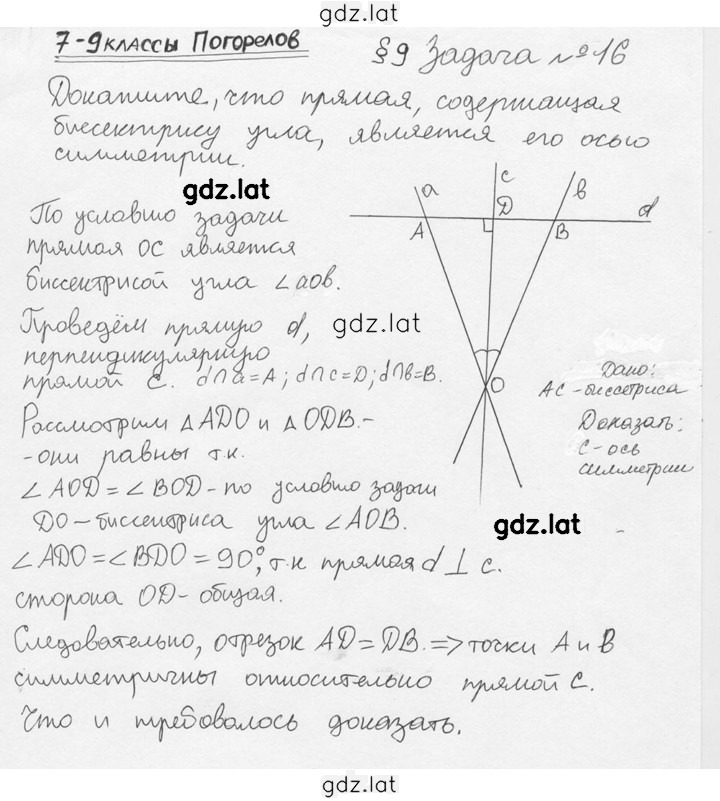 gdz.lat
7-9 классы Погорелов
§9 Задача № 16
Докажите, что прямая, содержащая
биссектрису угла, является его осью
симметрии.
gdz.lat
a
c
D
b
d
A
B
По условию задачи
прямая OC является
биссектрисой угла ∠aob.
Проведём прямую d,
gdz.lat
перпендикулярную
прямой C. d∩a=A; d∩c=D; d∩b=B.
O
Дано:
AC - биссетриса
Доказать:
C - ось
симметрии
Рассмотрим △ADO и △ODB.-
- они равны т.к.
∠AOD = ∠BOD - по условию задачи
DO - биссектриса угла ∠AOB.
gdz.lat
∠ADO = ∠BDO = 90°, т.к прямая d ⊥ c.
сторона OD - общая.
Следовательно, отрезок AD = DB. => точки A и B
симметричны относительно прямой C.
Что и требовалось доказать.
gdz.lat